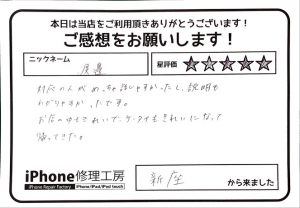 本日は当店をご利用頂きありがとうございます！
ご感想をお願いします！
ニックネーム
渡邉
星評価
★★★★★
対応の人がめっちゃ話しやすかったし、説明も
わかりやすかったです。
お店の中もきれいで、ケータイもきれいになって
帰ってきた。
iPhone修理工房
iPhone Repair Factory iPhone/iPad/iPod touch
新座
から来ました